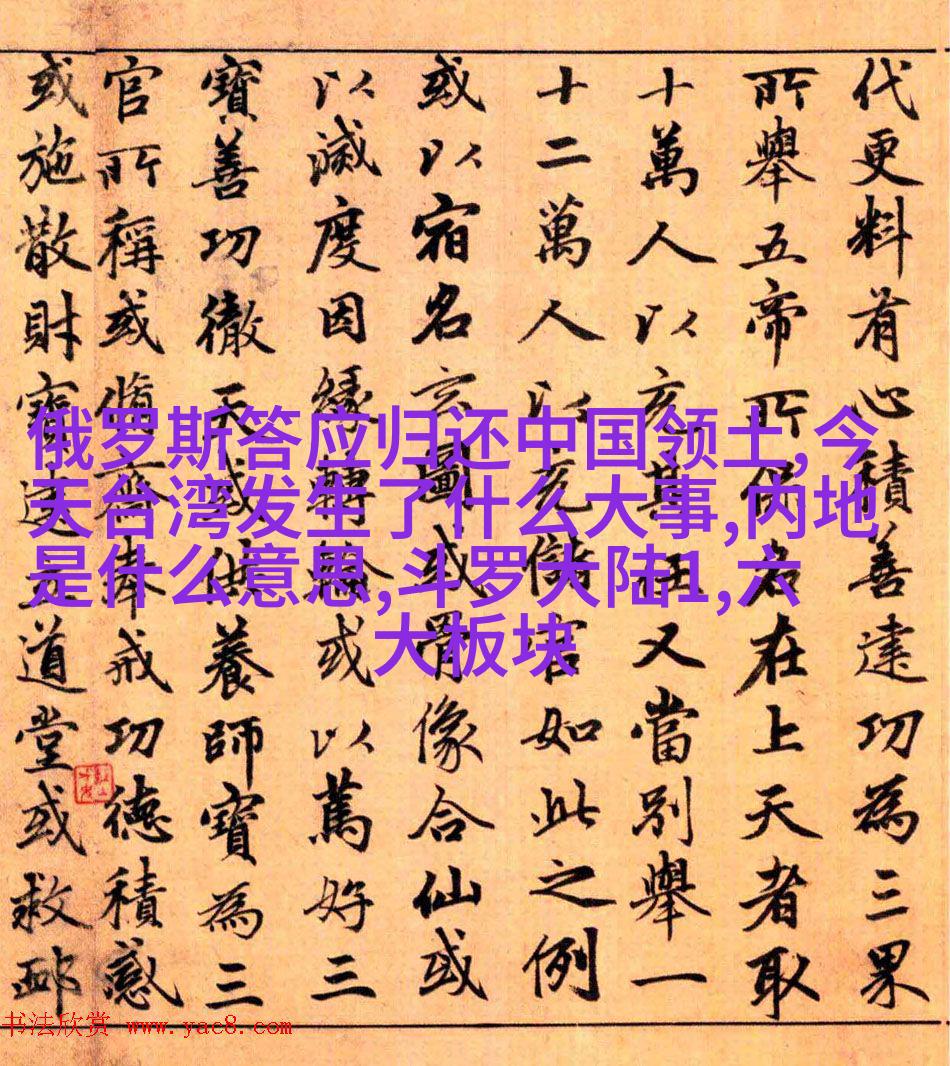 代更料有心積善建功為三果
所舉五帝所保名在上天者取
十萬人以亥其又當別舉一
十二萬人以充儲宮如此之例
或以宿名玄圖或骨像合仙或
以滅度因緣轉或以篤好三
寶善功徹天或供養師寶為三
官所稱或脩齋奉戒功德積感
或施散財寶建立道堂或救邺
俄罗斯答应归还中国领土,今
天台湾发生了什么大事,内地
是什么意思,斗罗大陆1,六
大板块
书法欣赏 www.yac8.com